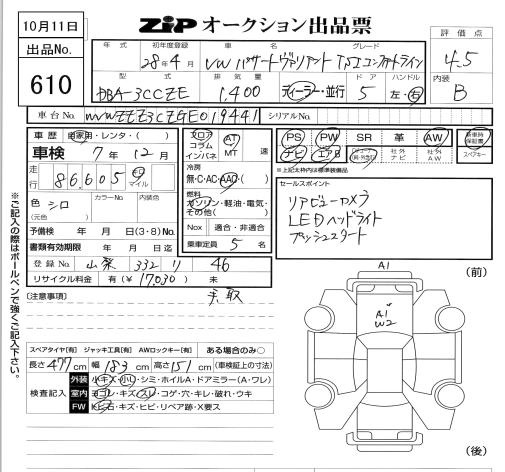 10月11日
ZiP オークション出品票
出品No.
610
評価点
4.5
内装
B
年式 初年度登録 車名 グレード
28年4月 VW パサートヴァリアント TSIコンフォートライン
型式 排気量 ドア ハンドル
DBA-3CCZE 1,400 ディーラー・並行 5 左・右
車台No. WVWZZZ3CZGE019441 シリアルNo.
車歴 自家用・レンタ・( )
車検 7年 12月
走行 86,605 km マイル
色 シロ カラーNo. 内装色
(元色)
予備検 年 月 日(3・8)( )
書類有効期限 年 月 日迄
登録No. 山梨 332 リ 46
リサイクル料金 有(¥ 17,030 ) 無
未取
フロア
コラム
インパネ
AT
MT 速
冷房
無・C・AC・AAC・( )
燃料
ガソリン・軽油・電気・
その他( )
Nox 適合・非適合
乗車定員 5 名
PS PW SR 革 AW 新車時保証書
ナビ エアB 社外ナビ 社外AW スペアキー
※上記太枠内は標準装備品
セールスポイント
リアビューカメラ
LEDヘッドライト
プッシュスタート
※ご記入の際はボールペンで強くご記入下さい。
[注意事項]
スペアタイヤ[有] ジャッキ工具[有] AWロックキー[有] ある場合のみ○
長さ 477 cm 幅 183 cm 高さ 151 cm (車検証上の寸法)
検査記入
外装 小キズ・小凹・シミ・ホイルA・ドアミラー(A・ワレ)
室内 ヨゴレ・キズ・スレ・コゲ・穴・キレ・破れ・ウキ
FW 飛石・キズ・ヒビ・リペア跡・X要ス
A1
(前)
A1
W2
(後)